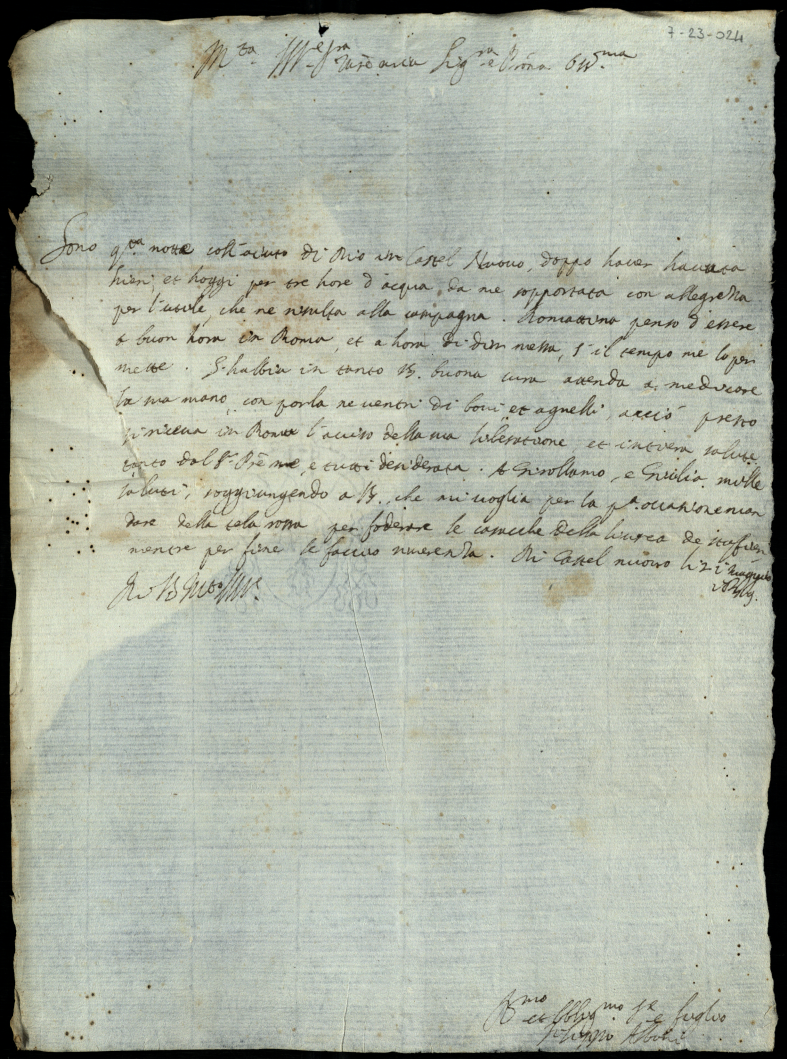 7-23-024
M.ta Ill.re Sig.ra e P.rona
Sono q.ta notte coll'aiuto di Dio in Castel Nuovo, doppo haver havuta
hieri, et hoggi per tre hore d'acqua, da me sopportata con allegrezza
per l'utile, che ne risulta alla campagna. penso d'essere
a buon hora in Roma, et a hora di desinar, s'il tempo me lo per
mette. S'habbia in tanto V.S. buona cura attenda a medicare
la sua mano, con porla ne ventri di bovi, et agnelli, acciò presto
si riceva in Roma l'aviso della sua liberatione, et intiera salute
tanto dal S.r P.re me, e tutti desiderata. A Girollamo, e Giulia mille
saluti, soggiungendo a V.S. che mi voglia per la p.a occasione man
dare della tela rossa per foderare le casacche della livrea de staffieri
mentre per fine le faccio riverenza. Di Castel nuovo li 21 Maggio
Di V.S. M.to Ill.re
et Oblig.mo S.re e figlio